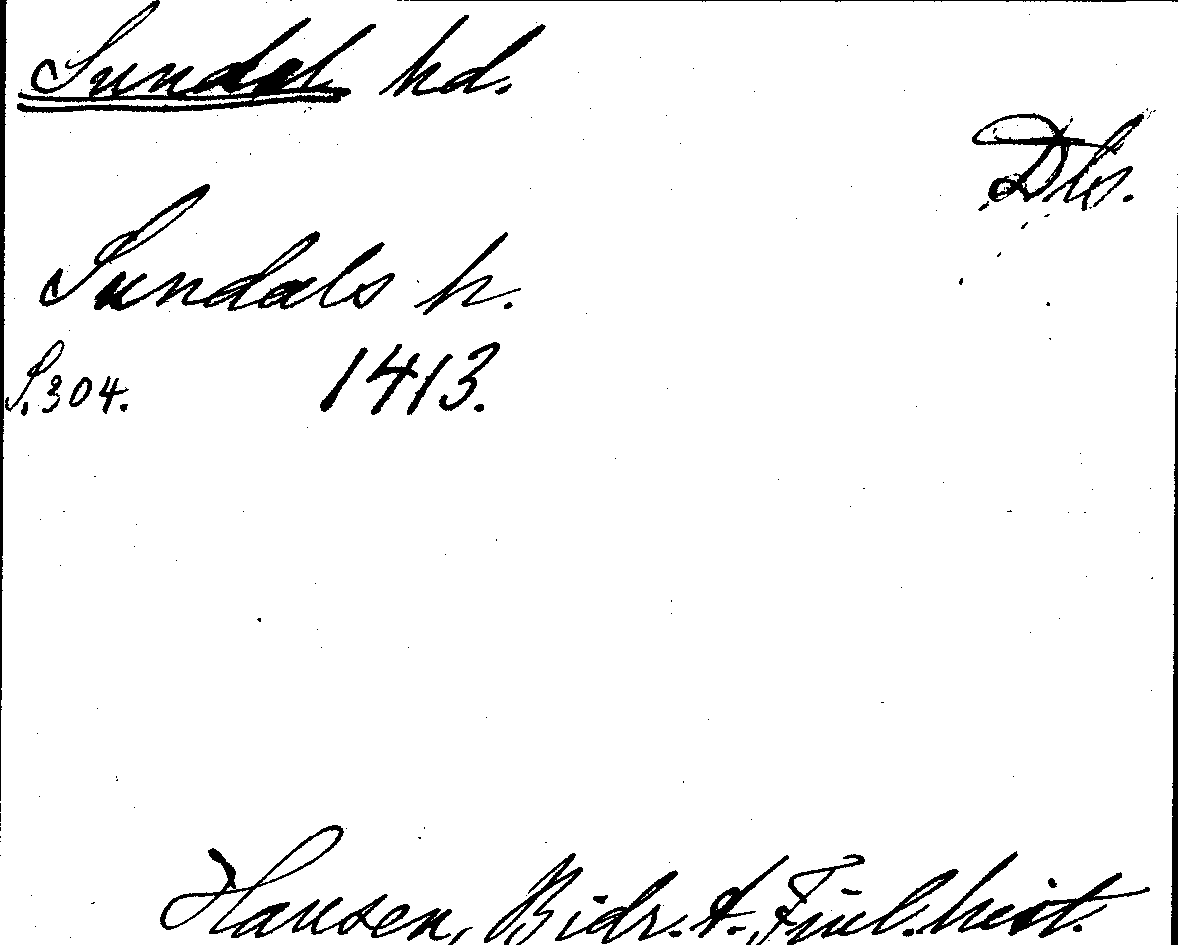 Sundal hd.
Dls.
Sundals h.
S. 304. 1413.
Hansen, Bidr. t. Finl. hist.